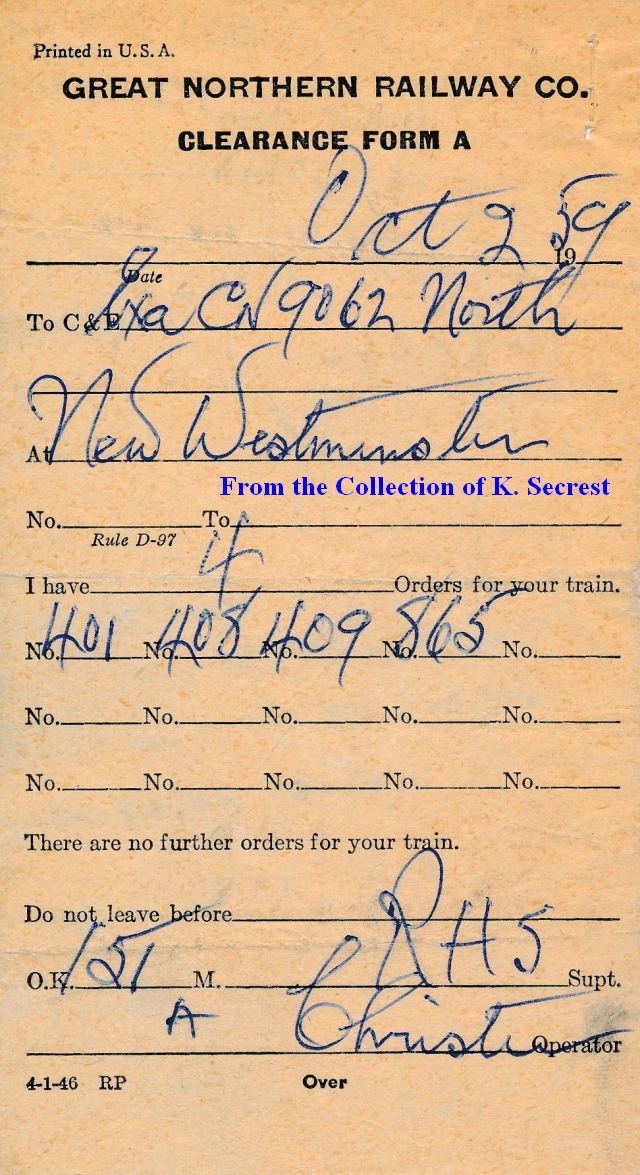 Printed in U.S.A.
GREAT NORTHERN RAILWAY CO.
CLEARANCE FORM A
Oct 2 1959
Date
To C&E Exa CN 9062 North
At New Westminster
From the Collection of K. Secrest
No. To
Rule D-97
I have 4 Orders for your train.
No. 401 No. 408 No. 409 No. 865 No.
No. No. No. No. No.
No. No. No. No. No.
There are no further orders for your train.
Do not leave before
O.K. 151 M. RHS Supt.
A Christie Operator
4-1-46 RP Over